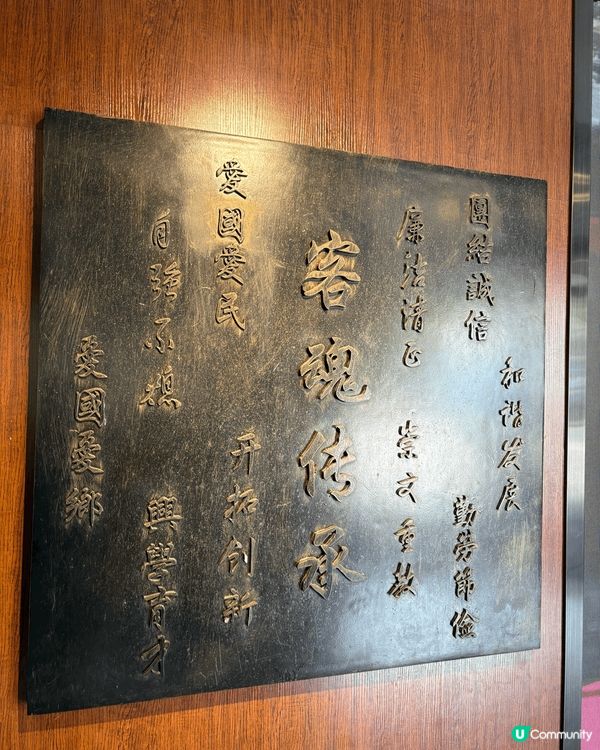 和谐发展
團結誠信
勤勞節儉
廉洁清正
崇文重教
客魂传承
愛國愛民
开拓创新
自强不息
興學育才
愛國愛鄉
U Community